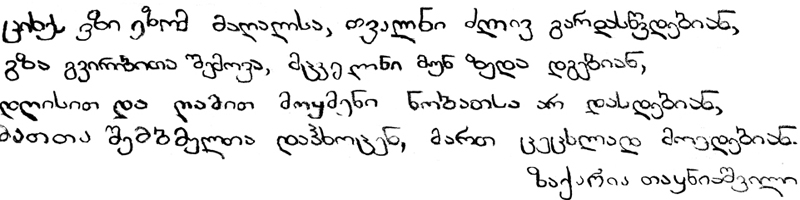 ციხეს ვზი ეზომ მაღალსა, თვალნი ძლივ გარდასწვდებიან,
გზა გვირაბითა შემოვა, მცველნი მუნ ზედა დგებიან,
დღისით და ღამით მოყმენი ნობათსა არ დასცდებიან,
მათთა შემბმელთა დაჰხოცენ, მართ ცეცხლად მოედებიან.
ზაქარია თაყნიაშვილი